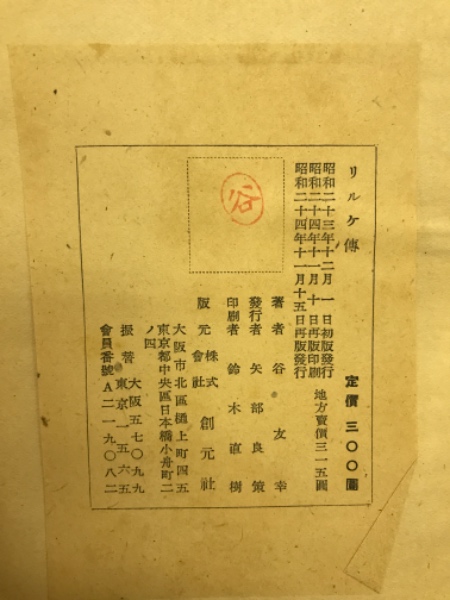 リルケ傳
定價 三〇〇圓
昭和二十三年十二月一日初版發行
昭和二十四年十一月十日再版印刷
昭和二十四年十一月十五日再版發行
地方賣價三一五圓
谷
著者 谷友幸
發行者 矢部良策
印刷者 鈴木直樹
版元 株式會社 創元社
大阪市北區樋上町四五
東京都中央區日本橋小舟町二ノ四
振替 大阪五七〇九九
東京一五六五
會員番號A二一九〇八二